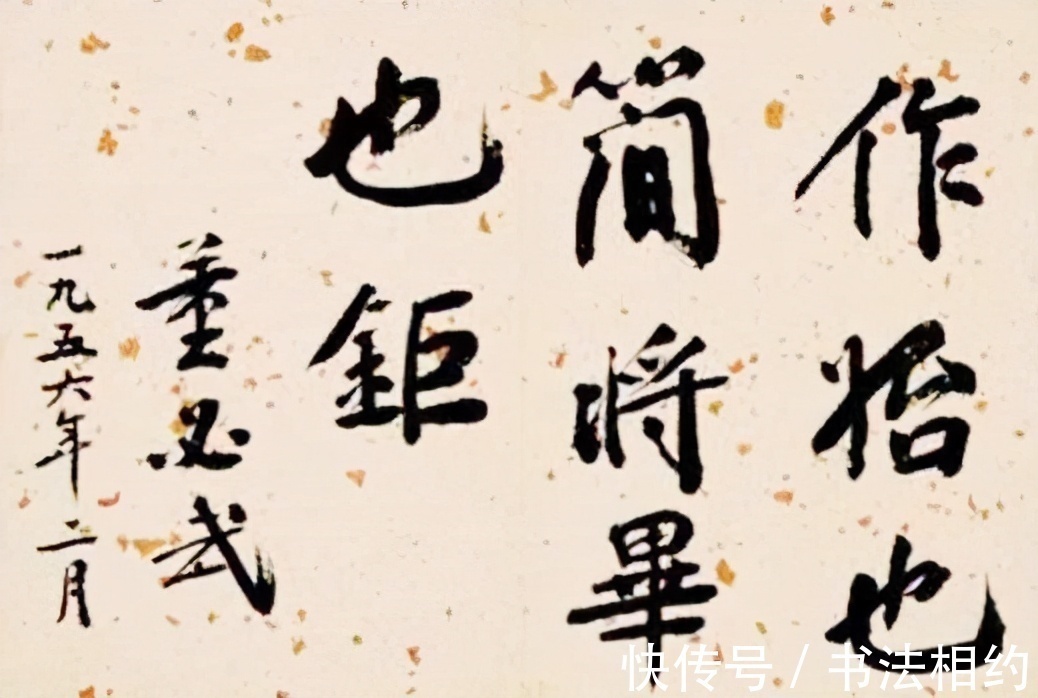 作始也
簡將畢
也鉅
董必武
一九五六年二月
快传号 / 书法相约